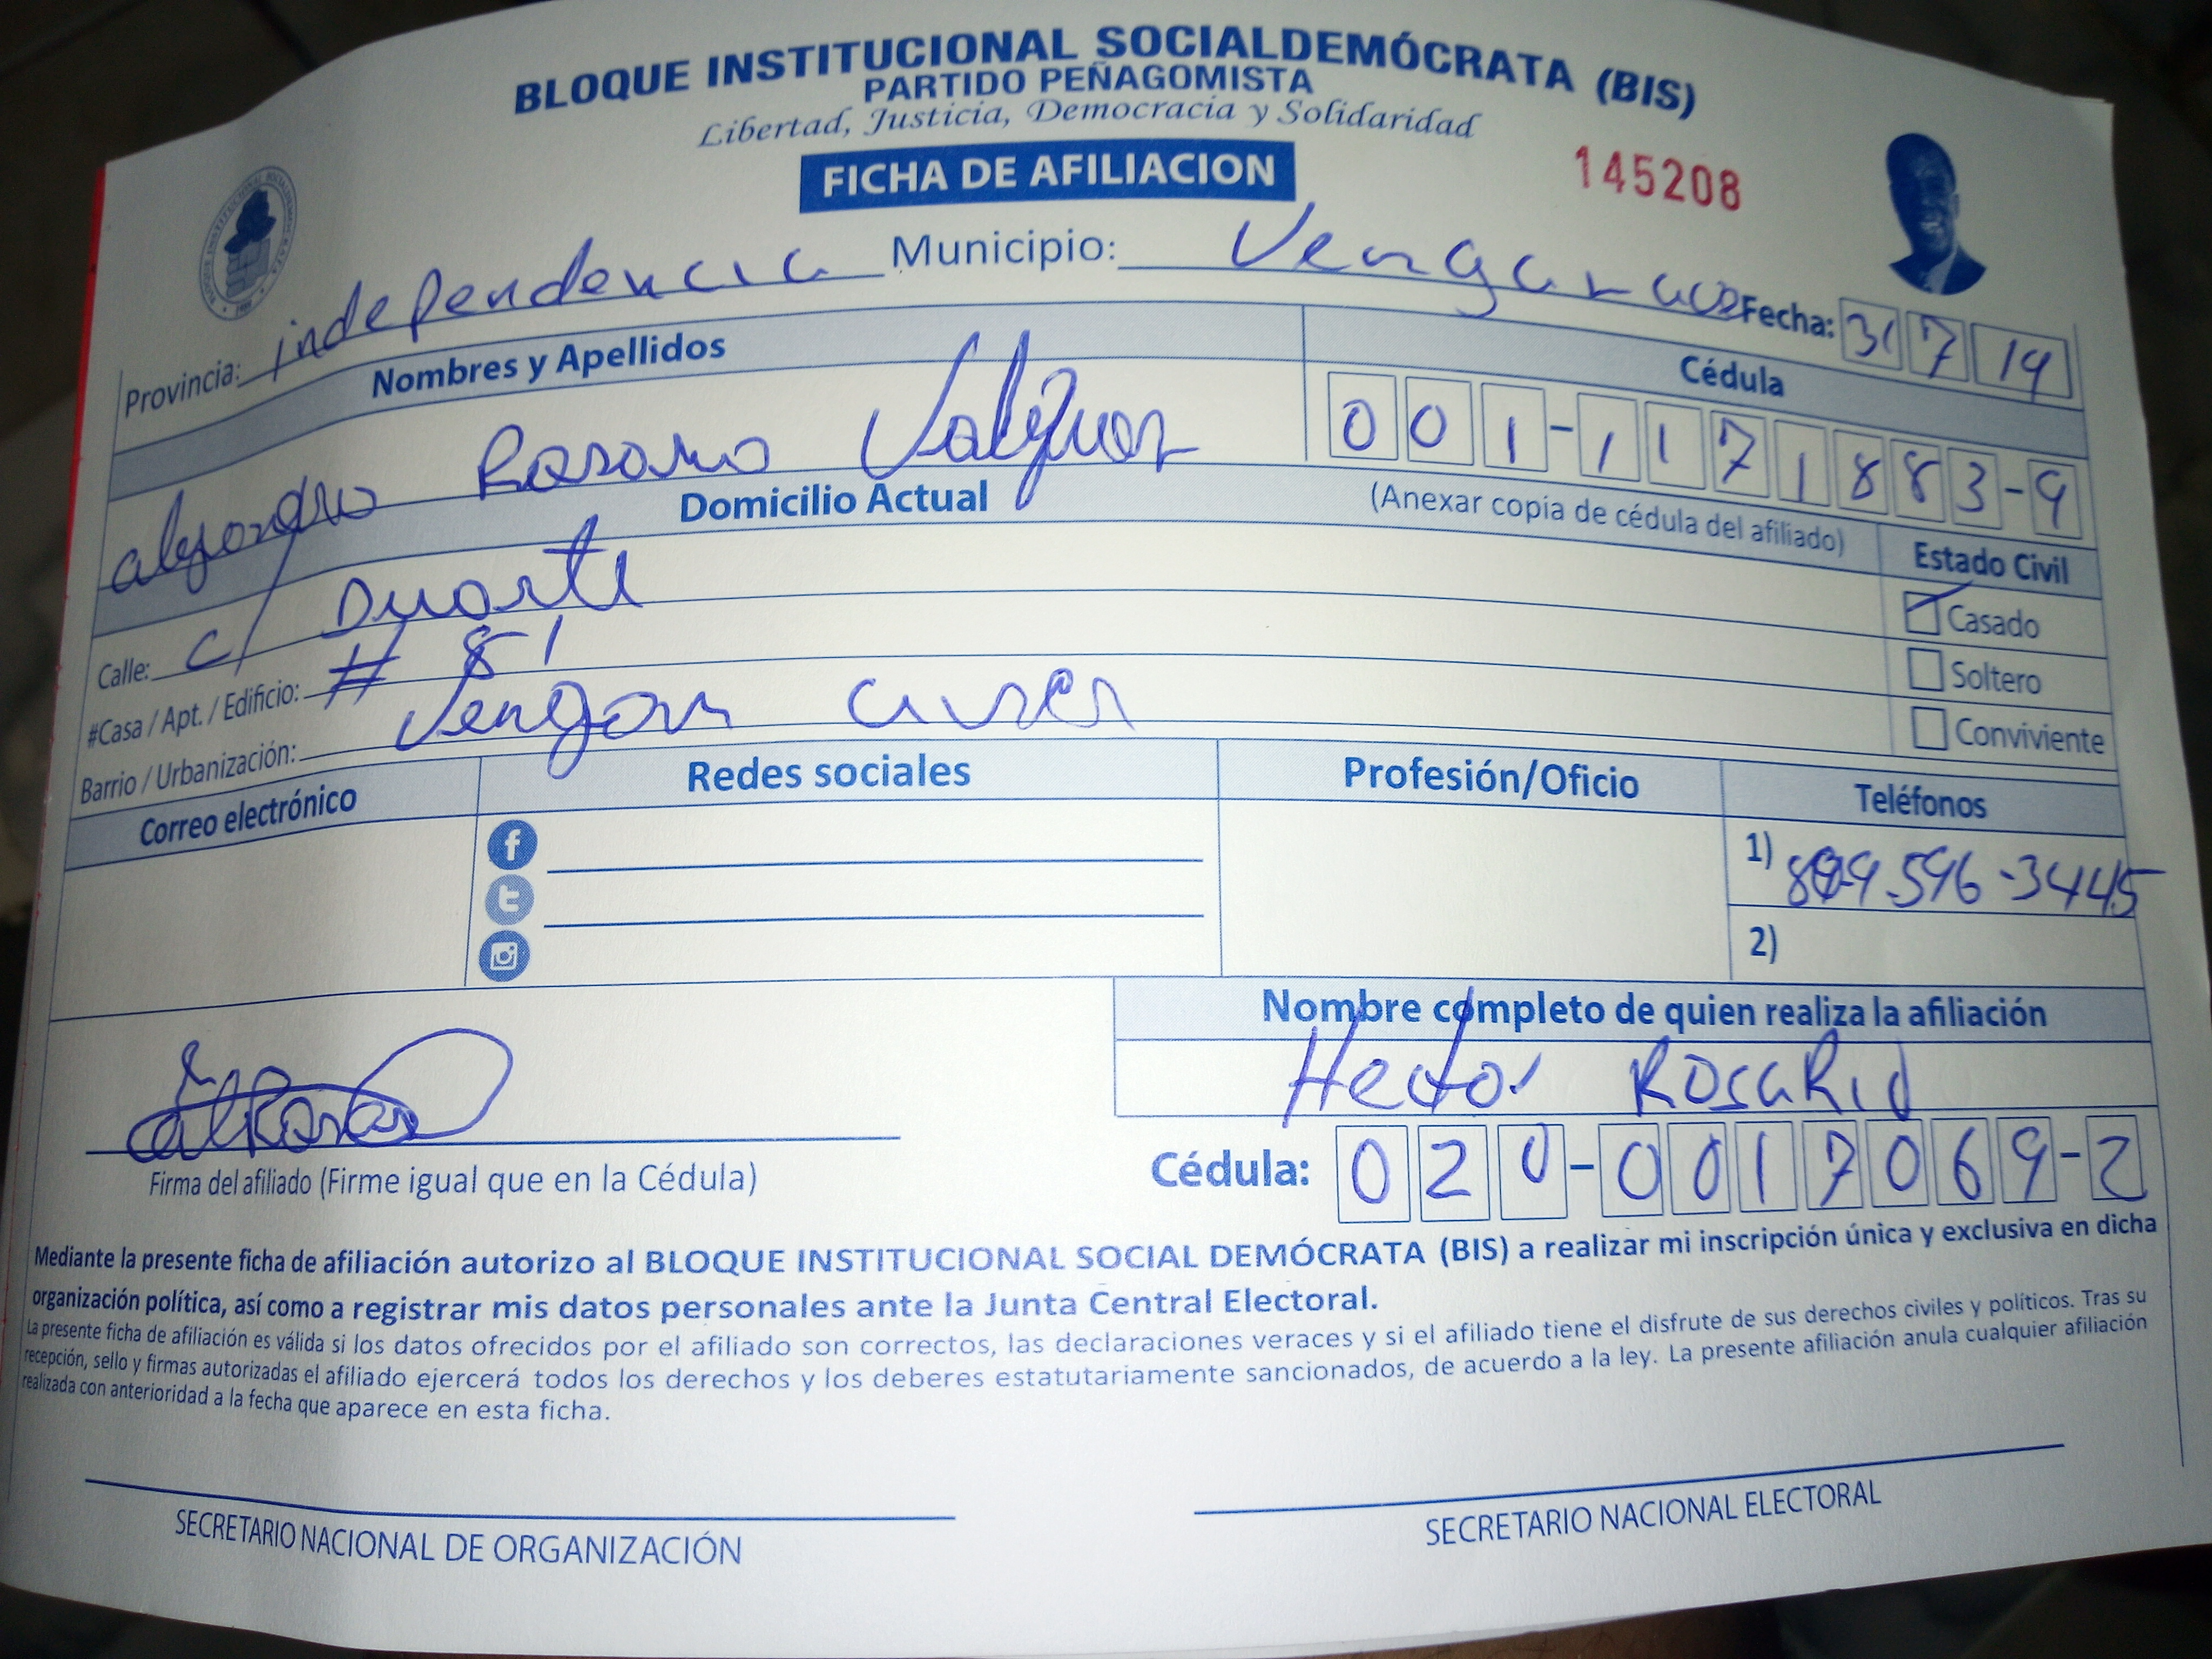 BLOQUE INSTITUCIONAL SOCIALDEMÓCRATA (BIS)
PARTIDO PEÑAGOMISTA
Libertad, Justicia, Democracia y Solidaridad
FICHA DE AFILIACION
145208
Provincia: independencia Municipio:
Fecha: 31 7 19
Nombres y Apellidos
Cédula
alejandro Rosario
001-1171883-9
Domicilio Actual
(Anexar copia de cédula del afiliado)
Estado Civil
Calle: c/ Duarte
Casado
#Casa / Apt. / Edificio: # 81
Soltero
Barrio / Urbanización:
Conviviente
Correo electrónico
Redes sociales
Profesión/Oficio
Teléfonos
1) 809 596-3445
2)
Nombre completo de quien realiza la afiliación
Hector RosaRio
Firma del afiliado (Firme igual que en la Cédula)
Cédula: 020-0017069-2
Mediante la presente ficha de afiliación autorizo al BLOQUE INSTITUCIONAL SOCIAL DEMÓCRATA (BIS) a realizar mi inscripción única y exclusiva en dicha
organización política, así como a registrar mis datos personales ante la Junta Central Electoral.
La presente ficha de afiliación es válida si los datos ofrecidos por el afiliado son correctos, las declaraciones veraces y si el afiliado tiene el disfrute de sus derechos civiles y políticos. Tras su
recepción, sello y firmas autorizadas el afiliado ejercerá todos los derechos y los deberes estatutariamente sancionados, de acuerdo a la ley. La presente afiliación anula cualquier afiliación
realizada con anterioridad a la fecha que aparece en esta ficha.
SECRETARIO NACIONAL DE ORGANIZACIÓN
SECRETARIO NACIONAL ELECTORAL